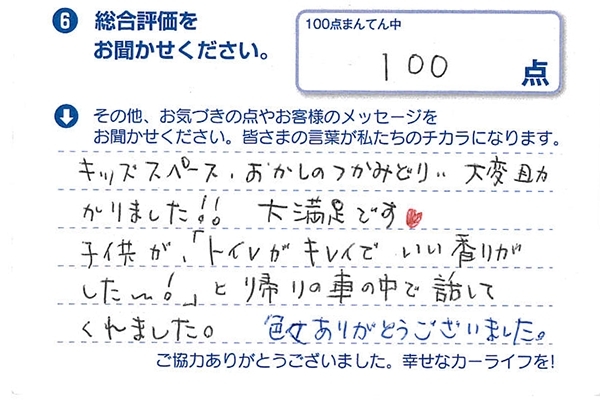 6 総合評価を
お聞かせください。
100点まんてん中
100 点
その他、お気づきの点やお客様のメッセージを
お聞かせください。皆さまの言葉が私たちのチカラになります。
キッズスペース、おかしのつかみどり‥大変助
かりました!! 大満足です♥
子供が、「トイレがキレイで いい香りが
した〜!」と帰りの車の中で話して
くれました。 色々ありがとうございました。
ご協力ありがとうございました。幸せなカーライフを!